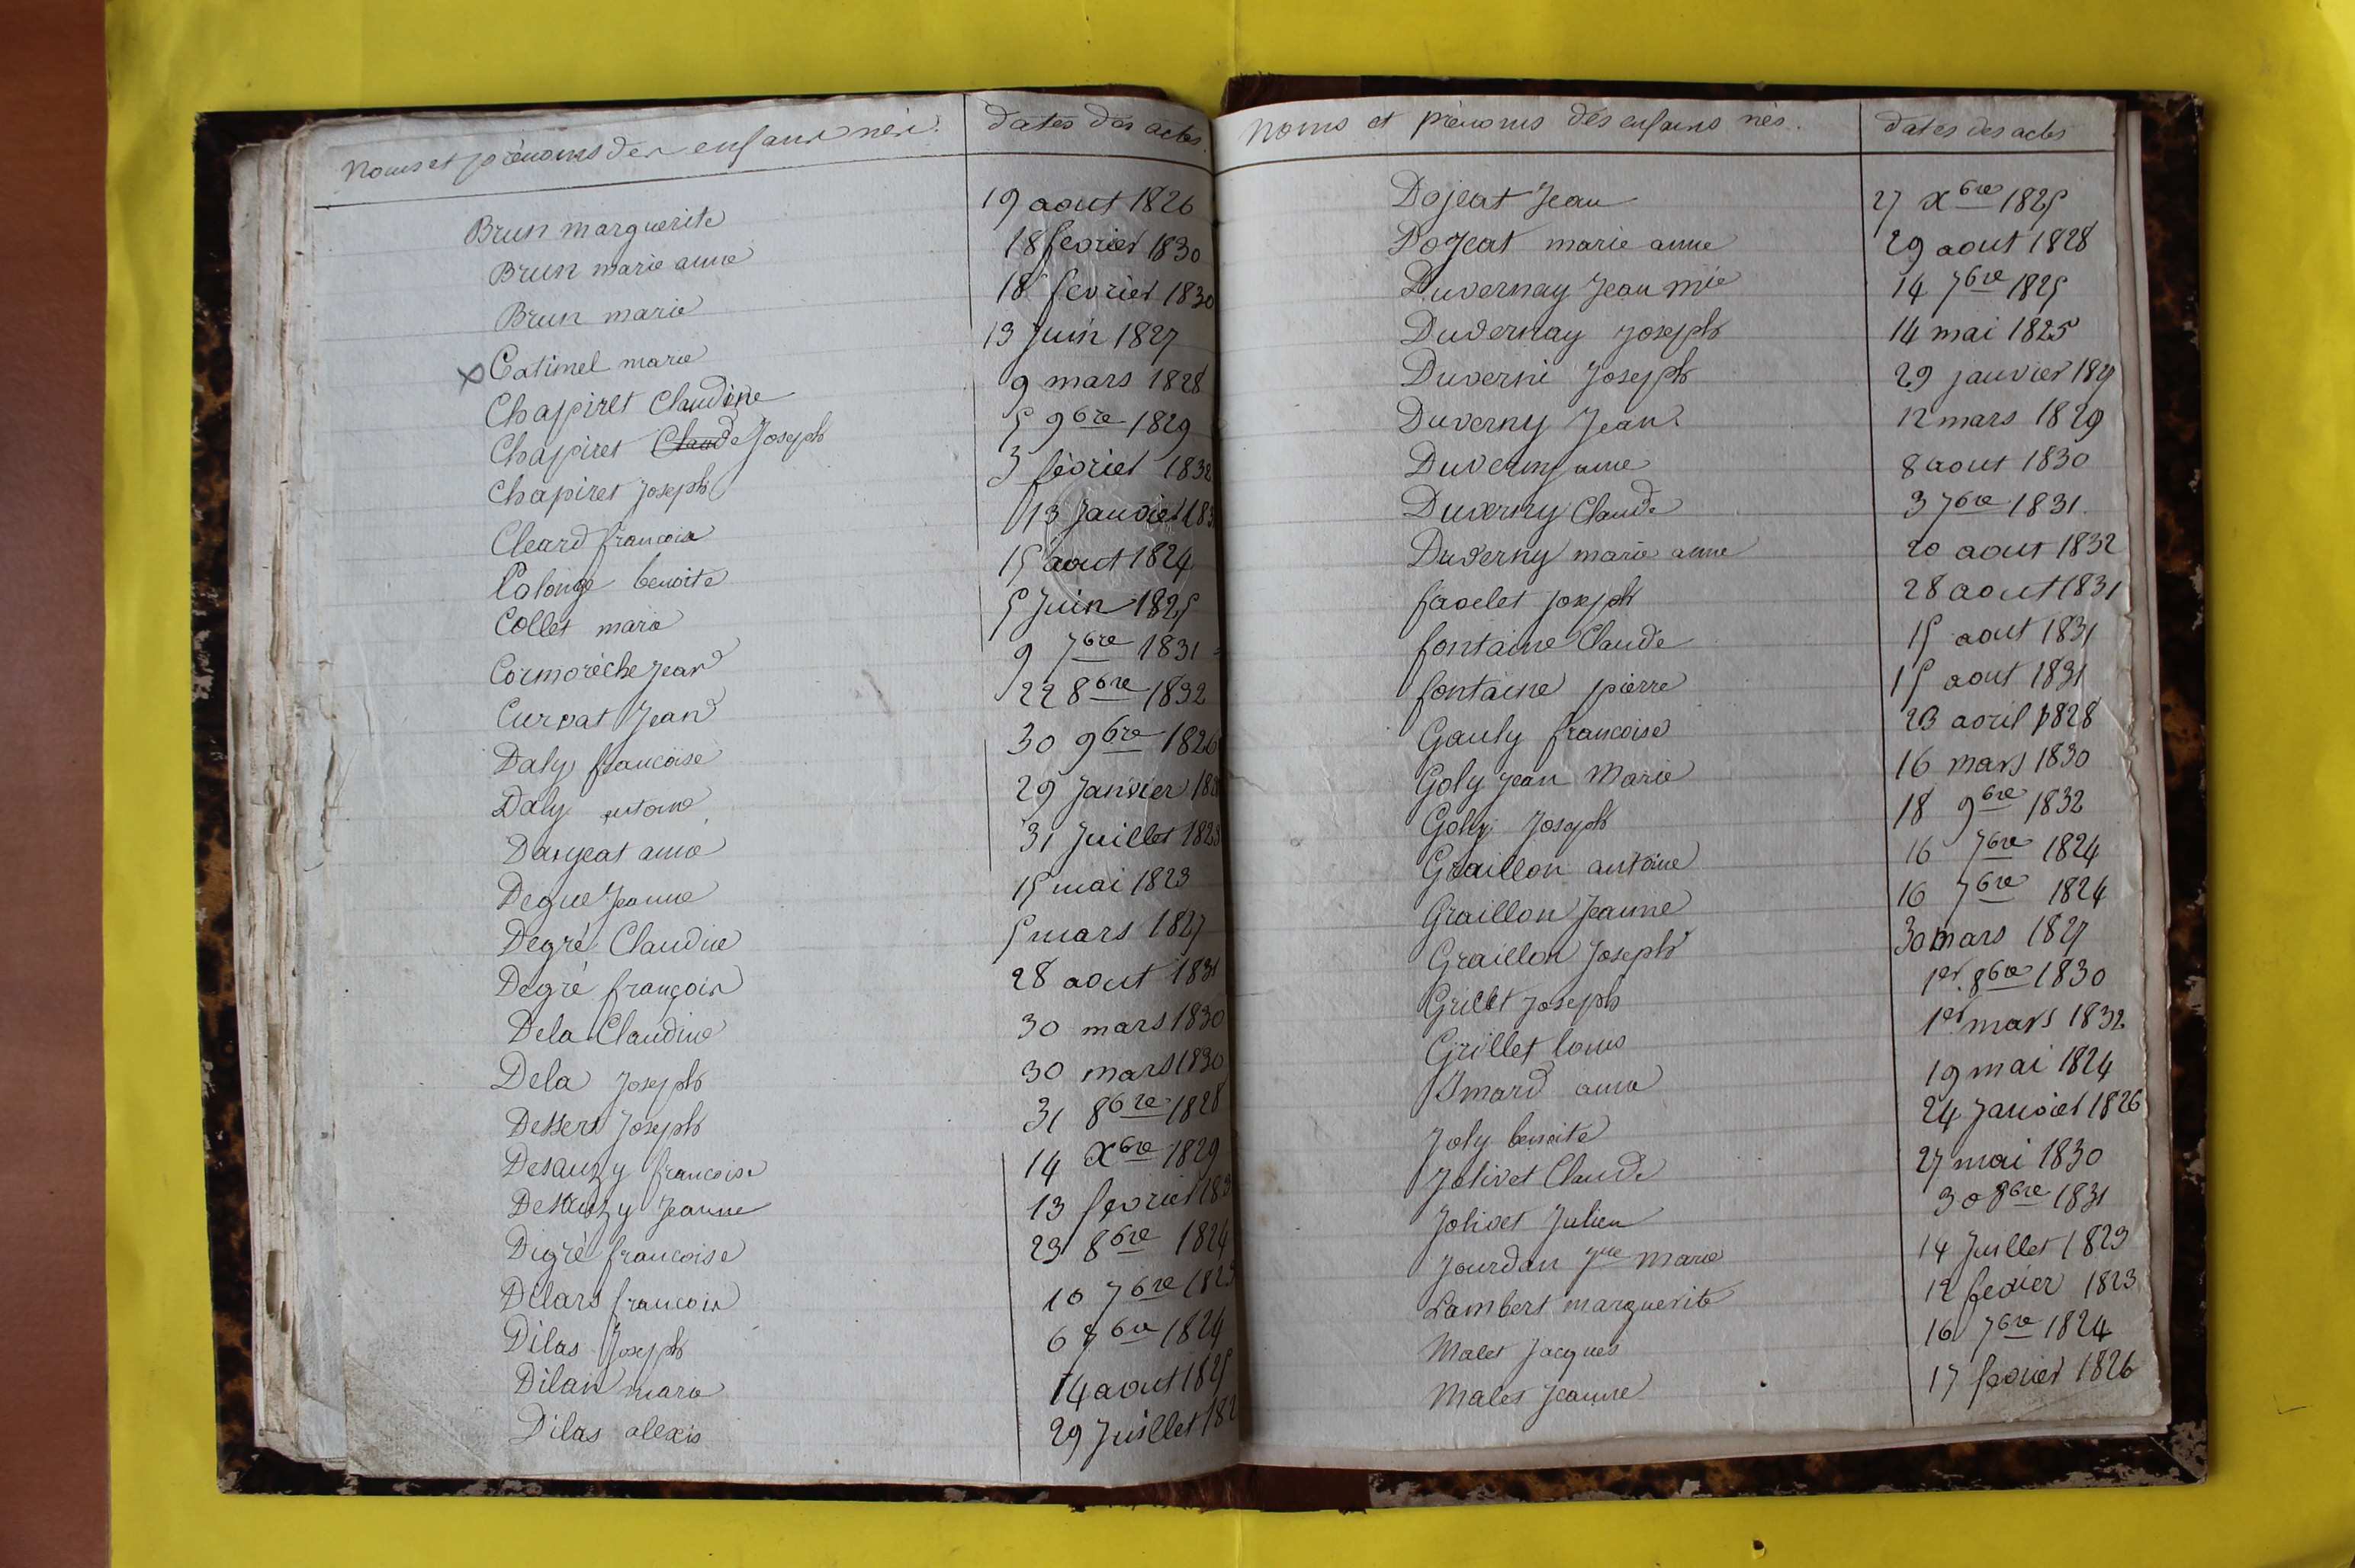 Noms et prénoms des enfans nés. dates des actes.
Brun marguerite 19 aout 1826
Brun marie anne 18 fevrier 1830
Brun marie 18 fevrier 1830
Catimel marie 13 Juin 1827
Chapiret Claudine 9 mars 1828
Chapiret Claude Joseph 5 9bre 1829
Chapiret Joseph 3 fevrier 1832
Cleard francois 13 Janvier
Colonge benoite 15 aout 1824
Collet marie 5 Juin 1825
Cormorèche Jean 9 7bre 1831
Curvat Jean 22 8bre 1832
Daly francoise 30 9bre 1826
Daly antoine 29 Janvier
Dargeat anne 31 Juillet 1823
Degue Jeanne 15 mai 1823
Degré Claudine 5 mars 1827
Degré françois 28 aout 1831
Dela Claudine 30 mars 1830
Dela Joseph 30 mars 1830
Dessert Joseph 31 8bre 1828
Desauzy francoise 14 Xbre 1829
Desauzy Jeanne 13 fevrier
Digré francoise 23 8bre 1824
Dilars francois 10 7bre
Dilas Joseph 6 bre 1824
Dilan marie 14 aout 1825
Dilas alexis 29 Juillet
Noms et prénoms des enfans nés. dates des actes
Dojeat Jean 27 Xbre 1825
Dojeat marie anne 29 aout 1828
Duvernay Jean mie 14 7bre 1825
Duvernay Joseph 14 mai 1825
Duverni Joseph 29 janvier
Duverny Jean 12 mars 1829
Duverny anne 8 aout 1830
Duverny Claude 3 7bre 1831.
Duverny marie anne 20 aout 1832
favelet Joseph 28 aout 1831
fontaine Claude 15 aout 1831
fontaine pierre 15 aout 1831
Gauly francoise 23 avril 1828
Goly Jean Marie 16 mars 1830
Goly Joseph 18 9bre 1832
Graillon antoine 16 7bre 1824
Graillon Jeanne 16 7bre 1824
Graillon Joseph 30 mars 1827
Grillet Joseph 1er 8bre 1830
Grillet louis 1er mars 1832
Ismard anne 19 mai 1824
Joly benoite 24 Janvier 1826
Jolivet Claude 27 mai 1830
Jolivet Julien 30 8bre 1831
Jourdan Marie 14 Juillet 1823
Lambert marguerite 12 fevier 1823
Malet Jacques 16 7bre 1824
Malet Jeanne 17 fevrier 1826